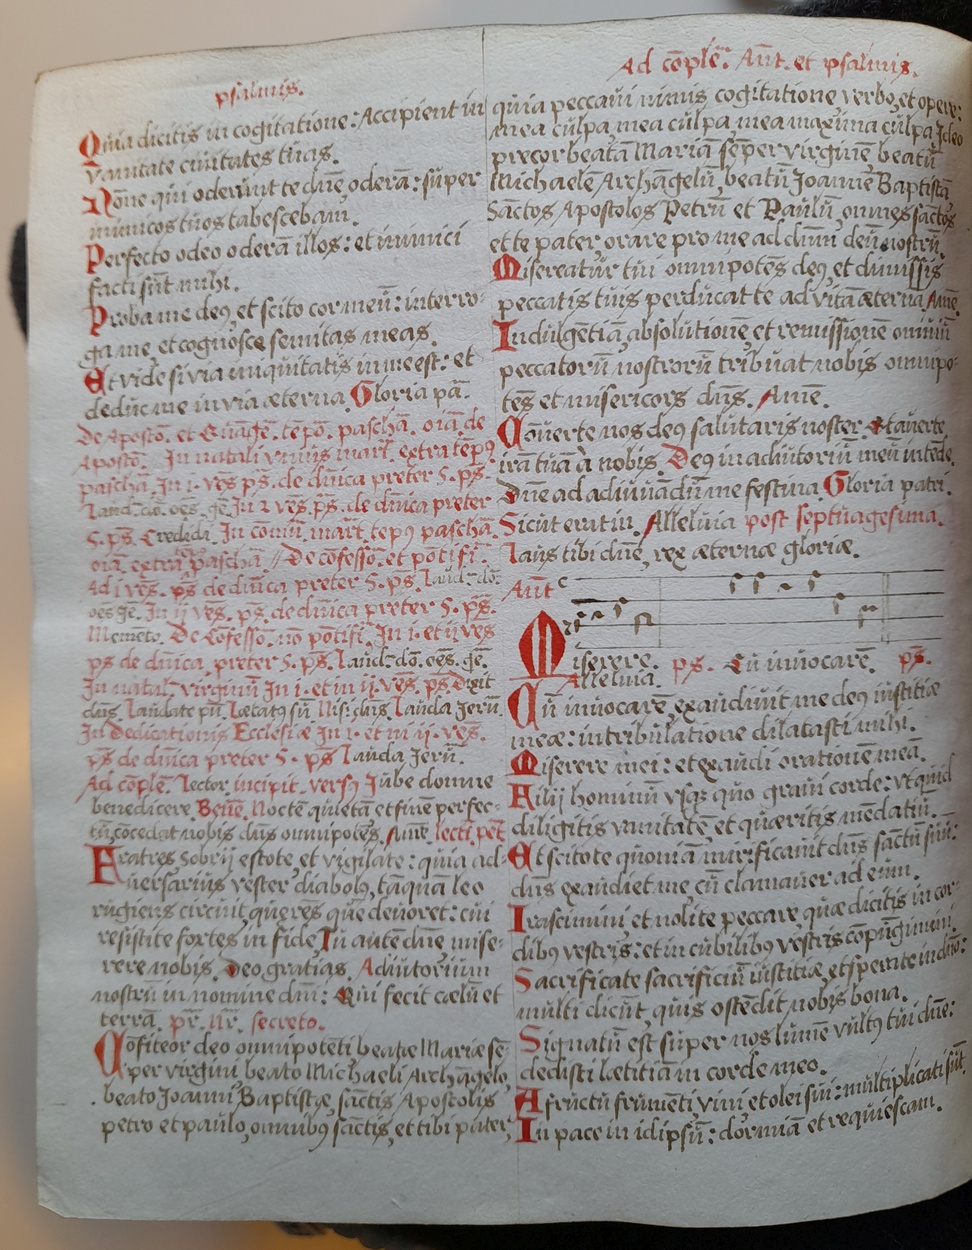 psalmis.
Quia dicitis in cogitatione: Accipient in
vanitate civitates tuas.
Nōne qui oderunt te dn̄e, oderā: super
inimicos tuos tabescebam.
Perfecto odeo oderā illos: et inimici
facti sūt mihi.
Proba me deꝰ, et scito cor meū: interro-
ga me, et cognosce semitas meas.
Et vide si via iniquitatis in me est: et
deduc me in via æterna. Gloria pā.
De Aposto. et Evāgē. tēpo. paschā. oīa de
Aposto. In natali vnius mart. extra tēpꝰ
paschā. In 1. ves ps. de dn̄ica preter 5. ps.
laud. do. oēs. gē. In 2 ves. ps. de dn̄ica preter
5. ps. Credidi. In cōmu. mart. tepꝰ paschā.
oīa extra paschā // De cōfesso. et pōtifi.
Ad i ves. ps de dn̄ica preter 5. ps. laud. do.
oēs gē. In ij ves. ps. de dn̄ica preter 5. ps.
Memēto. De Cōfesso. nō pōtifi. In i. et ij ves
ps de dn̄ica preter 5. ps. laud. do. oēs. gē.
In natal. virginū In 1. et in ij. ves. ps Dixit
dn̄s. laudate pu. Lætatꝰ sū Nisi dn̄s. lauda Jerū.
In Dedicationis Ecclesiæ In 1. et in ij. ves.
ps de dn̄ica preter 5. ps lauda Jerū.
Ad cōplē. lector incipit. versꝰ Jube domne
benedicere Benē. Noctē quietā et finē perfec-
tū cōcedat nobis dn̄s omnipotēs. Amē lecti. pet
Fratres Sobrij estote, et vigilate: quia ad-
versarius vester diabolꝰ, tāquā leo
rugiens circuit, querēs quē devoret: cui
resistite fortes in fide, Tu autē dn̄e mise-
rere nobis. Deo gratias. Adiutorium
nostrū in nomine dn̄i: Qui fecit cælū et
terrā. pr̄. nr̄. secreto.
Cōfiteor deo omnipotēti beatæ Mariæ sē-
per virgini beato Michaeli Archāgelo,
beato Joanni Baptistæ, sāctis Apostolis
petro et paulo, omnibꝰ sāctis, et tibi pater,
Ad cōplē. Ant. et psalmis.
quia peccavi nimis cogitatione, verbo, et opere:
mea culpa, mea culpa, mea maxima culpa. Ideo
precor beatā Mariā sēper virginē, beatū
Michaelē Archāgelū, beatū Joannē Baptistā,
Sāctos Apostolos Petrū et Paulū, omnes sāctos
et te pater, orare pro me ad dn̄m deū nostrū.
Misereatur tui omnipotēs deꝰ, et dimissis
peccatis tuis perducat te ad vitā æterna. Amē.
Indulgētiā, absolutionē, et remissionē omniū
peccatorū nostrorū tribuat nobis omnipo-
tēs et misericors dn̄s. Amē.
Cōverte nos deꝰ salutaris noster. Et averte
irā tuā à nobis. Deꝰ in adiutoriū meū intēde.
Dn̄e ad adiuvādū me festina. Gloria patri.
Sicut erat in. Alleluia post septuagesima.
laus tibi dn̄e, rex æternæ gloriæ.
Ant
Miserere. ps. Cū invocarē. ps.
Alleluia.
Cū invocarē, exaudivit me deꝰ iustitiæ
meæ: in tribulatione dilatasti mihi.
Miserere mei: et exaudi orationē meā.
Filij hominū vsqꝫ quo gravi corde: vt quid
diligitis vanitatē, et quæritis mēdatiū.
Et scitote quoniā mirificavit dn̄s sāctū suū:
dn̄s exaudiet me, cū clamaver ad eum.
Irascimini, et nolite peccare quæ dicitis in cor-
dibꝰ vestris: et in cubilibꝰ vestris cōpūgimini.
Sacrificate sacrificiū iustitiæ, et sperate in dn̄o:
multi dicūt, quis ostēdit nobis bona.
Signatū est super nos lumē vultꝰ tui dn̄e:
dedisti lætitiā in corde meo.
A fructu frumēti, vini et olei sui: multiplicati sūt.
In pace in idipsū: dormiā et requiescam.